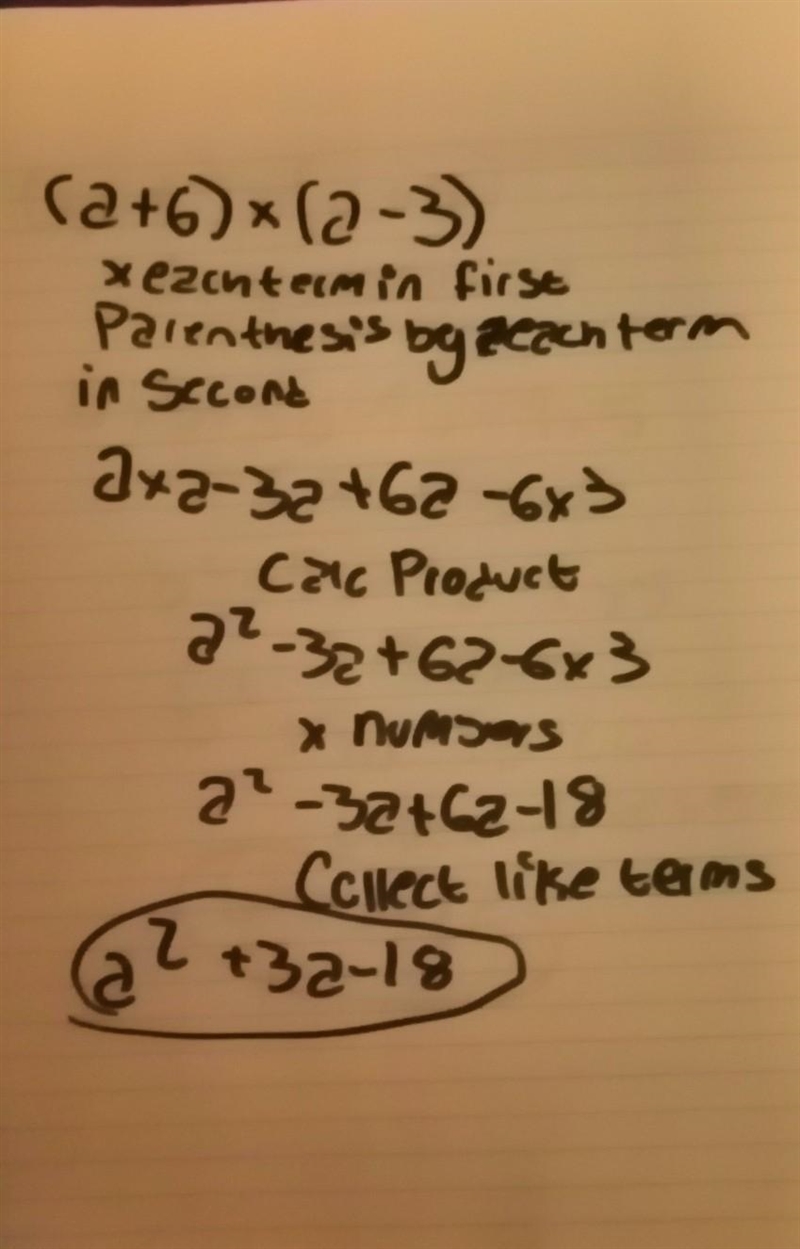 (a+6)×(a-3)
x each term in first
Parenthesis by each term
in Second
a×a-3a+6a-6×3
Calc Product
a²-3a+6a-6×3
x numbers
a²-3a+6a-18
Collect like terms
a²+3a-18